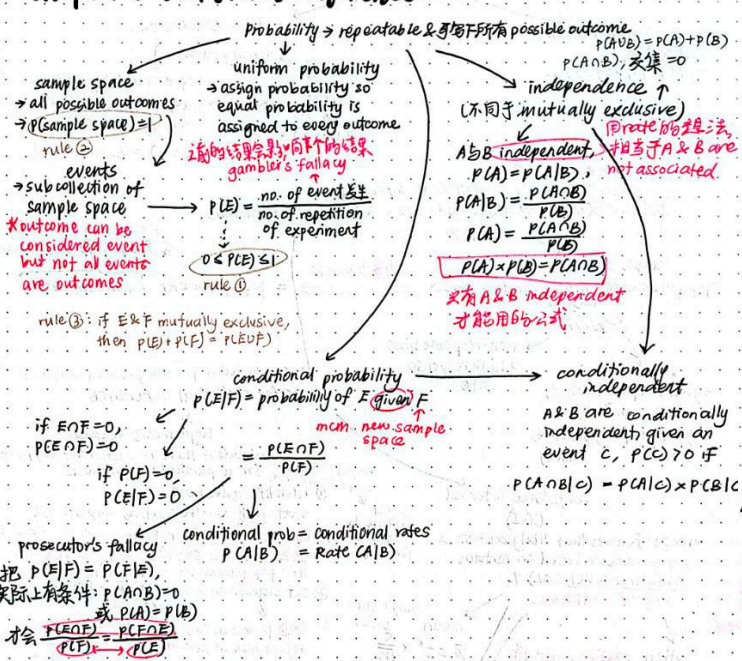 Probability → repeatable & 可写下所有 possible outcome
P(A∪B) = P(A)+P(B)
P(A∩B), 交集 = 0
sample space
→ all possible outcomes
→ P(sample space) = 1
rule ②
events
→ subcollection of
sample space
*outcome can be
considered event
but not all events
are outcomes
uniform probability
→ assign probability so
equal probability is
assigned to every outcome
之前的结果会影响下个的结果
gambler's fallacy
P(E) = no. of event 发生
no. of repetition
of experiment
0 ≤ P(E) ≤ 1
rule ①
rule ③: if E & F mutually exclusive,
then P(E) + P(F) = P(E∪F)
independence
(不同于 mutually exclusive)
A与B independent,
用rate的想法,
相当于 A & B are
not associated
P(A) = P(A|B),
P(A|B) = P(A∩B)
P(B)
P(A) = P(A∩B)
P(B)
P(A) × P(B) = P(A∩B)
只有 A & B independent
才能用的公式
conditional probability
P(E|F) = probability of E given F
mcm new sample
space
= P(E∩F)
P(F)
if E∩F = 0,
P(E∩F) = 0
if P(F) = 0,
P(E|F) = 0
conditional prob = conditional rates
P(A|B) = Rate (A|B)
conditionally
independent
A & B are conditionally
independent given an
event C, P(C) > 0 if
P(A∩B|C) = P(A|C) × P(B|C
prosecutor's fallacy
把 P(E|F) = P(F|E),
实际上有条件: P(A∩B) = 0
或 P(A) = P(B)
才会 P(E∩F) = P(F∩E)
P(F) P(E)